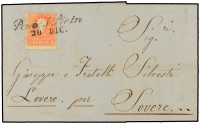 Ponte S. Pietro
26 DIC.
Giuseppe e Fratelli Silvestri
Lovere per Sovere